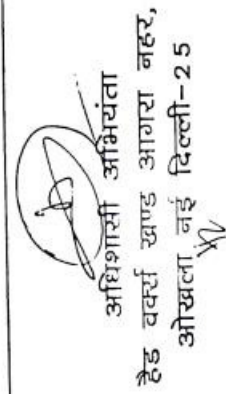 अधिशासी अभियंता
हैड वर्क्स खण्ड आगरा नहर,
ओखला नई दिल्ली-25